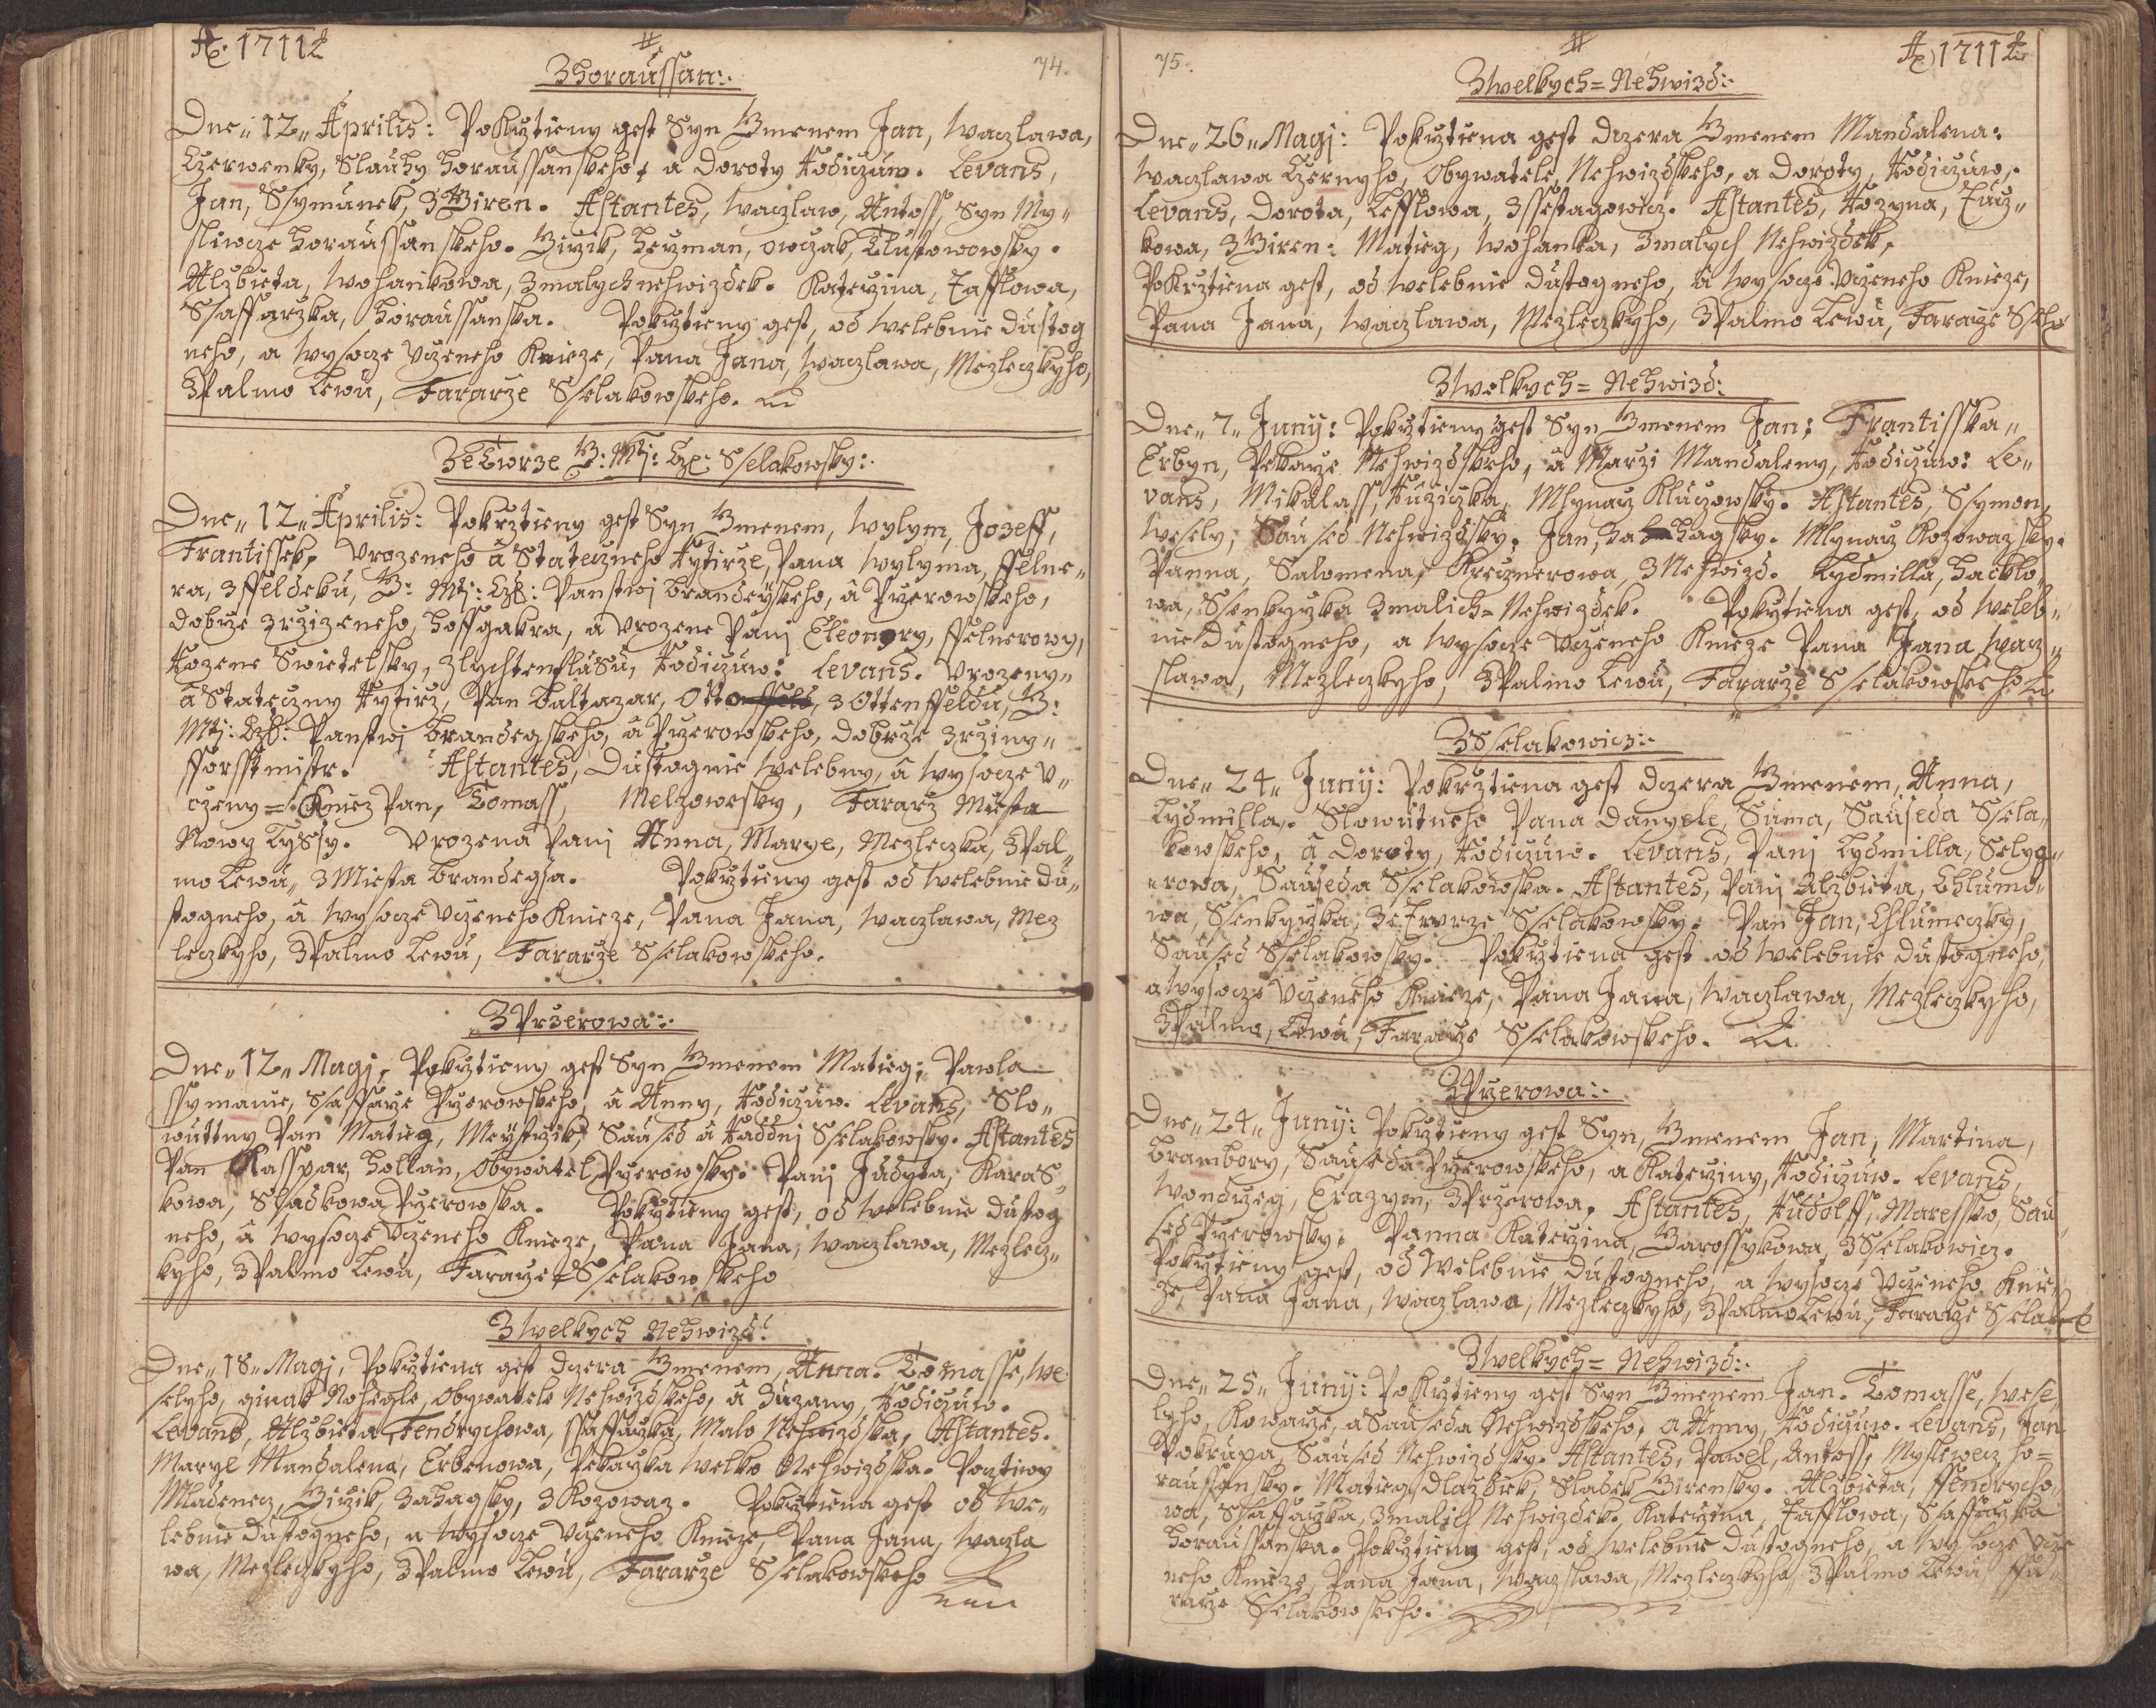 Aº 1711
74.
Z Horaussan:
Dne 12 Aprilis: Pokrztieny gest Syn Gmenem Jan, Waczlawa,
Czerwenky, Slauhy Horaussanskeho, a Doroty Rodiczuw. Levans,
Jan, Ssymunek, z Giren. Astantes, Waczlaw, Antoss, Syn My-
sliwcze Horaussanskeho. Girzik, Herzman, owczak, Tlustowowsky.
Alzbieta, Wohankowa, z malych nehwizdek. Katerzina, Fafflowa,
Ssaffarzka, Horaussanska. Pokrztieny gest, od Welebnie dustog
neho, a Wysocze Uczeneho Knieze, Pana Jana, Waczlawa, Mezleczkyho,
z Palmo Lewu, Fararze Sselakowskeho.
Ze Dworze G: M: Cz: Sselakowsky:
Dne 12 Aprilis: Pokrztieny gest Syn Gmenem, Wylym, Jozeff,
Frantissek, Urozeneho a Stateczneho Rytirze, Pana Wylyma, Felne-
ra, z Feldeku, G: M: Cz: Panstwj Brandeyskeho, a Przerowskeho,
dobrze zrzizeneho, Hoffgakra, a Urozene Panj Eleonory, Felnerowy,
Rozene Swietelsky, z Lychtenflusu, Rodiczuw: Levans. Urozeny
a Stateczny Rytirz, Pan Baltazar, Otto, z Ottenffeldu, G:
M: Cz: Panstwj Brandegskeho, a Przerowskeho, dobrze zrziny
fforsstmistr. Astantes, Dustognie Welebny, a Wysocze U-
czeny Kniez Pan, Tomass, Melzowesky, Fararz Miesta
Nowy Lyssy. Urozena Panj Anna, Marye, Mezleczka, z Pal-
mo Lewu, z Miesta Brandegsa. Pokrztieny gest od Welebnie du-
stogneho, a Wysocze Uczeneho Knieze, Pana Jana, Waczlawa, Mez
leczkyho, z Palmo Lewu, Fararze Sselakowskeho.
Z Przerowa:
Dne 12 Magj, Pokrztieny gest Syn Gmenem Matieg, Pawla
Ssymanie, Ssaffarze Przerowskeho, a Anny, Rodiczuw. Levans, Slo-
wuttny Pan Matieg, Meystrzik, Saused a Raddnj Sselakowsky. Astantes
Pan Kasspar Hollan, Obywatel Przerowsky. Panj Judyta, Karas-
kowa, Sladkowa Przerowska. Pokrztieny gest, od Welebnie dustog
neho, a Wysocze Uczeneho Knieze, Pana Jana, Waczlawa, Mezlecz-
kyho, z Palmo Lewu, Fararze Sselakowskeho
Z Welkych Nehwizd:
Dne 18 Magj, Pokrztiena gest dczera Gmenem, Anna. Tomasse, We
selyho, ginak Nohegle, Obywatele Nehwizdskeho, a Zuzany, Rodiczuw.
Levans, Alzbieta Fendrychowa, Ssaffarzka, Malo Nehwizdska, Astantes.
Marye Mandalena, Erbenowa, Pekarzka Welko Nehwizdska. Poctiwy
Mladenecz, Girzik, Zahagsky, z Kozowaz. Pokrztiena gest od We-
lebnie dustogneho, a Wysocze Uczeneho Knieze, Pana Jana, Waczla
wa, Mezleczkyho, z Palmo Lewu, Fararze Sselakowskeho
75.
Aº 1711
Z Welkych = Nehwizd:
Dne 26 Magj: Pokrztiena gest dczera Gmenem Mandalena:
Waczlawa Czernyho, Obywatele Nehwizdskeho, a Doroty, Rodiczuw.
Levans, Dorota, Lefflowa, z Ssestagowicz. Astantes, Rozyna,
kowa, z Giren: Matieg, Wohanka, z malych Nehwizdek,
Pokrztiena gest, od Welebnie dustogneho, a Wysocze Uczeneho Knieze,
Pana Jana, Waczlawa, Mezleczkyho, z Palmo Lewu, Fararze Ssela
Z Welkych = Nehwizd:
Dne 7 Juny: Pokrztieny gest Syn Gmenem Jan: Frantisska
Erbyn, Pekarze Nehwizdskeho, a Marzi Mandaleny, Rodiczuw: Le-
vans, Mikulass, Ruziczka, Mlynarz Kluczowsky. Astantes, Ssymon,
Wesely, Saused Nehwizdsky. Jan, Zahagsky. Mlynarz Kozowazsky.
Panna, Salomena, Kreiznerowa z Nehwizd. Lydmilla, Hacklo
wa, Ssenkyrzka z malich = Nehwizdek. Pokrztiena gest, od Weleb-
nie Dustogneho, a Wysocze Uczeneho Knieze Pana Jana Wacz-
slawa, Mezleczkyho, z Palmo Lewu, Fararze Sselakowskeho
Z Sselakowicz:
Dne 24 Juny: Pokrztiena gest dczera Gmenem, Anna,
Lydmilla. Slowutneho Pana Danyele, Suma, Sauseda Ssela-
kowskeho, a Doroty, Rodiczuw. Levans, Panj Lydmilla, Selyg-
rowa, Sauseda Sselakowska. Astantes, Panj Alzbieta, Chlumo-
wa, Ssenkyrzka, ze Dworze Sselakowsky. Pan Jan, Chlumeczky,
Saused Sselakowsky. Pokrztiena gest od Welebnie dustogneho,
a Wysocze Uczeneho Knieze, Pana Jana, Waczlawa, Mezleczkyho,
z Palmo, Lewu, Fararze Sselakowskeho.
Z Przerowa:
Dne 24 Juny: Pokrztieny gest Syn, Gmenem Jan, Martina,
Brambory, Sauseda Przerowskeho, a Katerziny, Rodiczuw. Levans,
Wondrzeg, Erazym, z Przerowa, Astantes, Rudolff, Maressko, Sau
sed Przerowsky. Panna Katerzina, Barossykowa, z Sselakowicz.
Pokrztieny gest, od Welebnie dustogneho, a Wysocze Uczeneho Knie-
ze, Pana Jana, Waczlawa, Mezleczkyho, z Palmo Lewu, Fararze Sselak
Z Welkych = Nehwizd:
Dne 25 Juny: Pokrztieny gest Syn Gmenem Jan. Tomasse, Wese
lyho, Kowarze, a Sauseda Nehwizdskeho, a Anny, Rodiczuw. Levans, Jan
Pokrupa, Saused Nehwizdsky. Astantes, Pawel, Antoss, Mysliwecz Ho=
raussansky. Matieg Dlazdiek, Sladek Girensky. Alzbieta, Fendrycho
wa, Ssaffarzka, z malich Nehwizdek, Katerzina, Fafflowa, Ssaffarzka
Horaussanska. Pokrztieny gest, od Welebnie dustogneho, a Wysocze Ucze
neho Knieze, Pana Jana, Waczslawa, Mezleczkyho, z Palmo Lewu, Fa-
rarze Sselakowskeho.